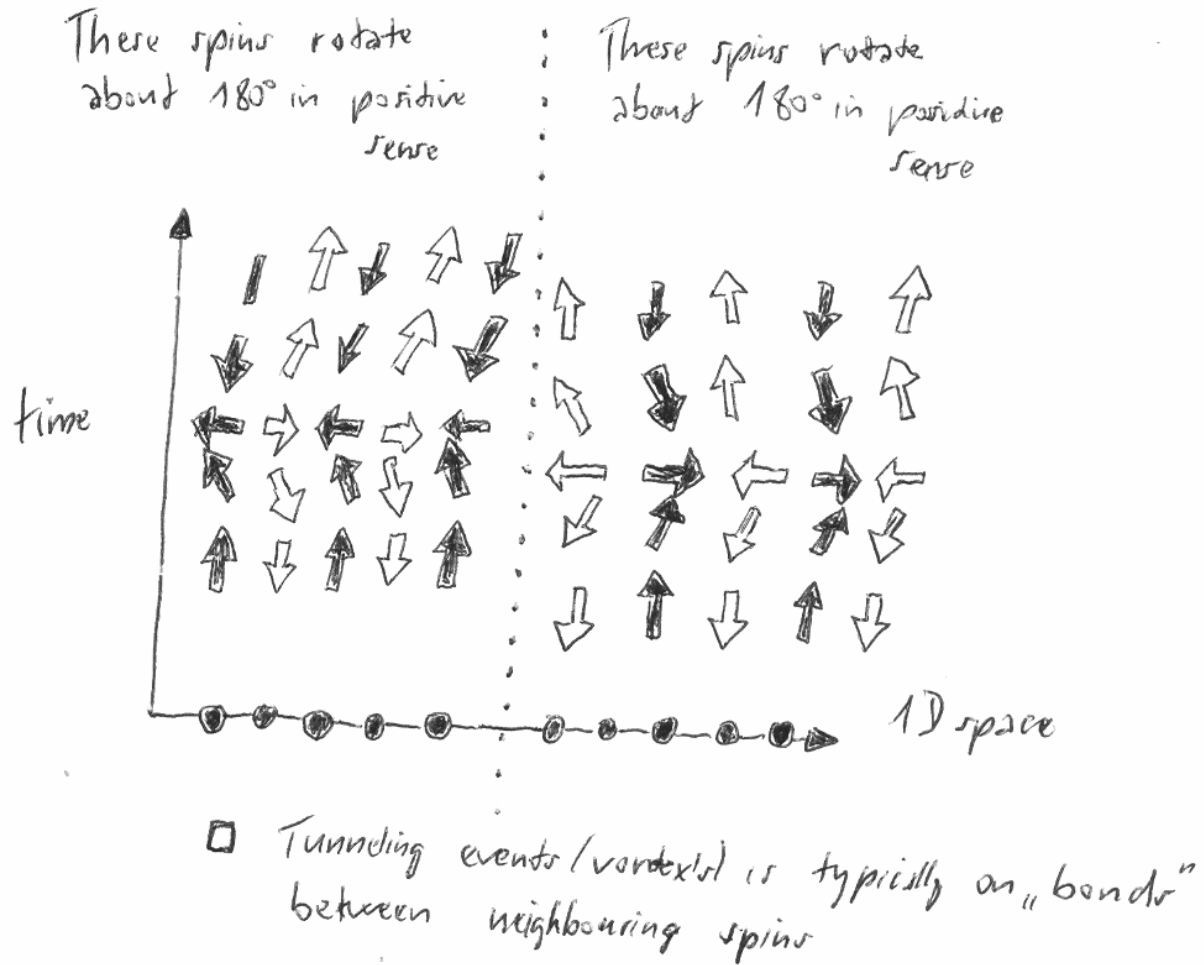 These spins rotate
about 180° in positive
sense
These spins rotate
about 180° in positive
sense
time
1D space
Tunneling events (vortex's) is typically on „bonds"
between neighbouring spins